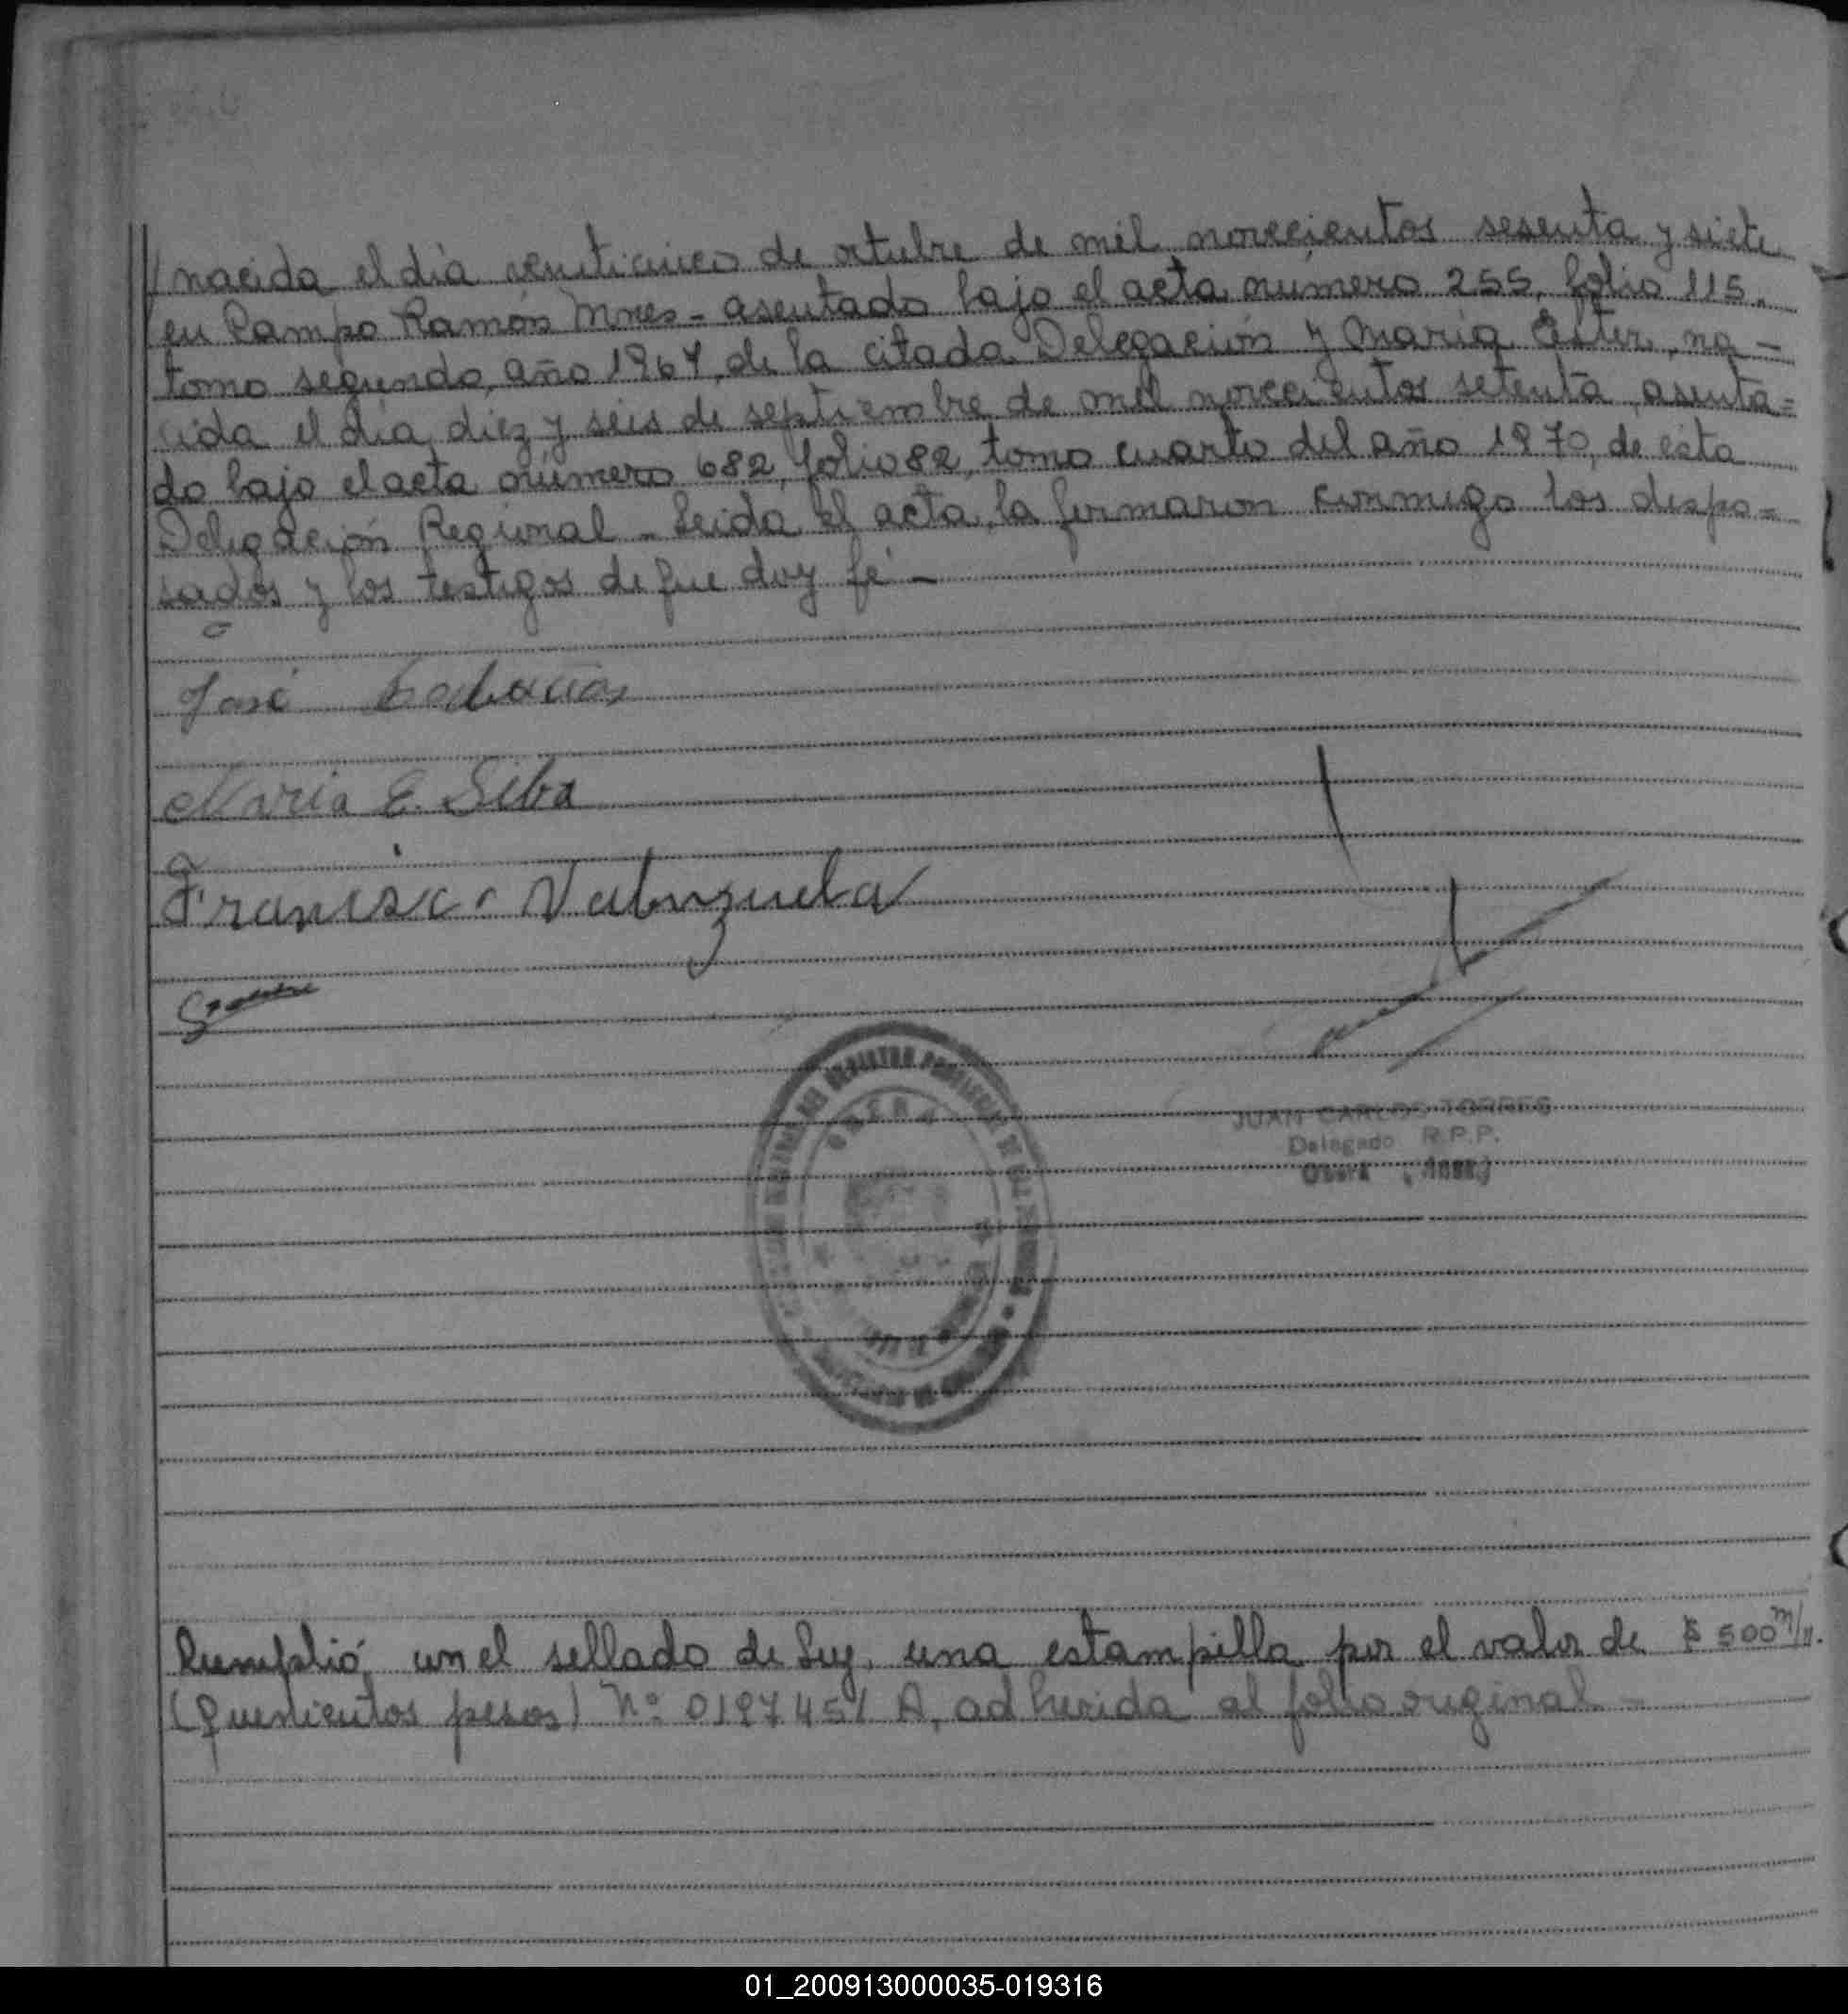 nacida el día veinticinco de octubre de mil novecientos sesenta y siete
en Campo Ramón Mnes - asentado bajo el acta número 255, folio 115,
tomo segundo, año 1967, de la citada Delegación y María Ester, na-
cida el día diez y seis de septiembre de mil novecientos setenta, asenta=
do bajo el acta número 682, folio 82, tomo cuarto del año 1970, de esta
Delegación Regional - Leida el acta, la firmaron conmigo los despo=
sados y los testigos de que doy fé -
José
Maria E. Silva
Francisco Valenzuela
JUAN CARLOS TORRES
Delegado R.P.P.
Oberá
Cumplió con el sellado de Ley, una estampilla por el valor de $ 500 m/n.
(Quinientos pesos) Nº 0197451 A, adherida al folio original -
01_200913000035-019316